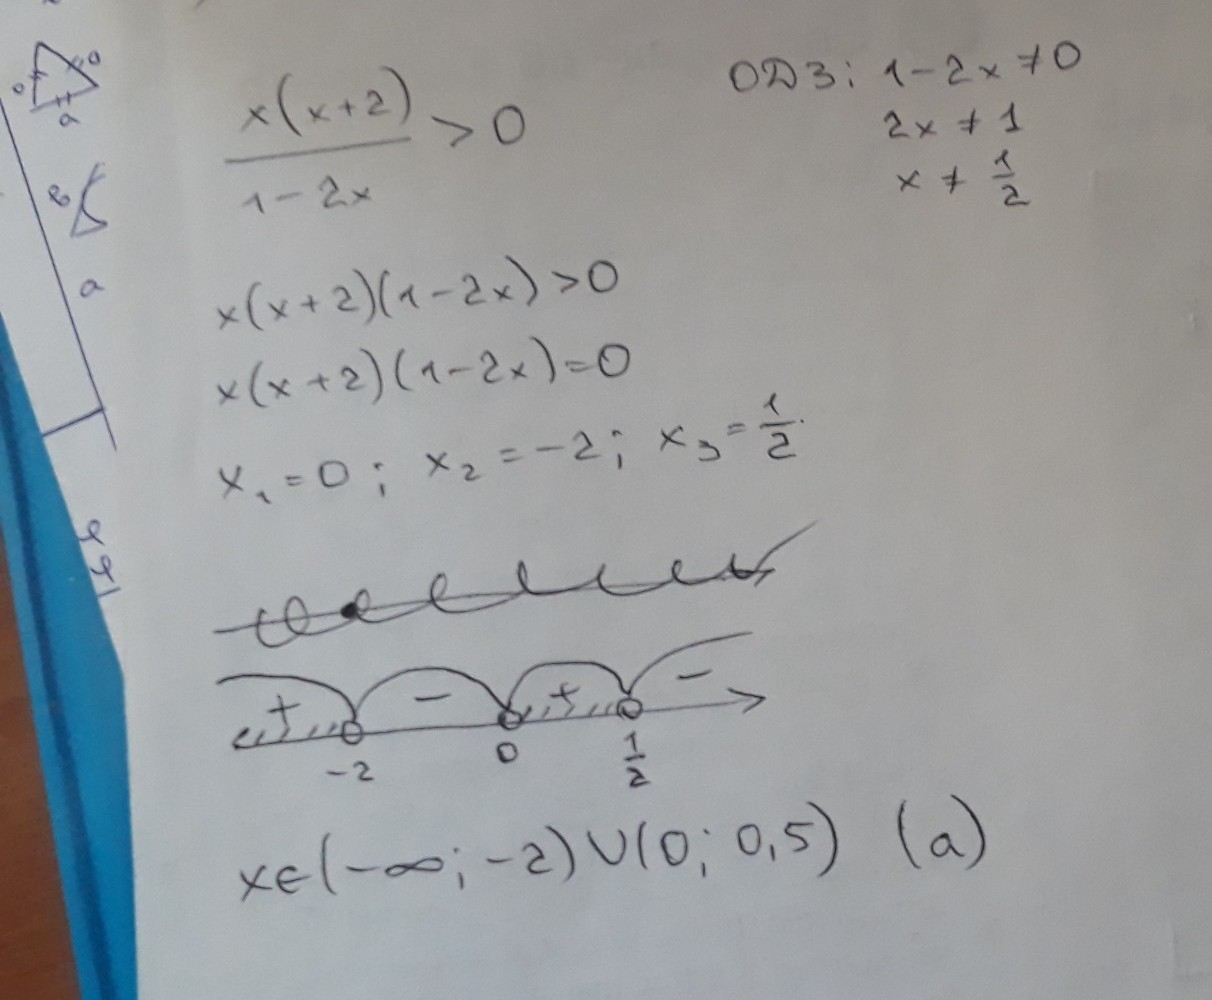 x(x+2)/(1-2x) > 0
ОДЗ: 1-2x≠0
2x≠1
x≠1/2
x(x+2)(1-2x)>0
x(x+2)(1-2x)=0
x₁=0; x₂=-2; x₃=1/2.
+ - + -
-2 0 1/2
x∈(-∞;-2)∪(0; 0,5) (a)
o o
a
в
a